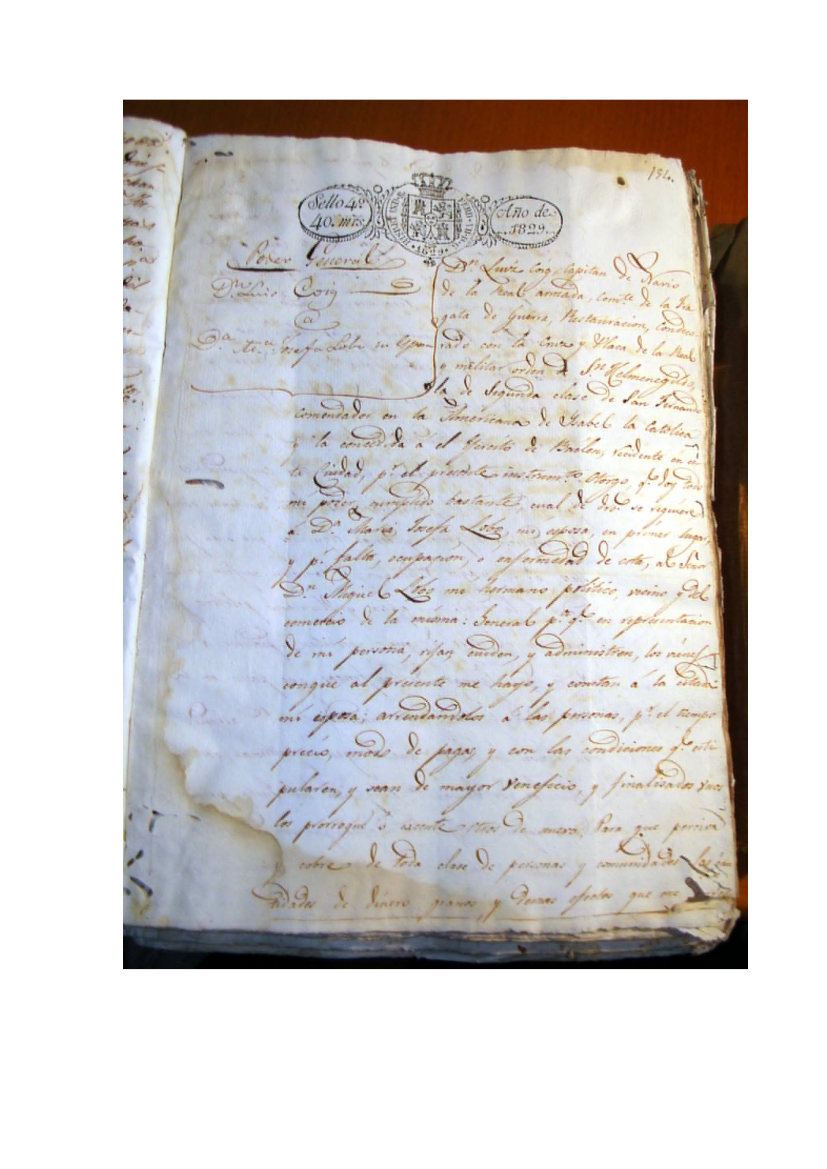 194.
Sello 4º
40. mrs
Año de
1829.
Poder General
Dn. Luis Coig
a
Da. Ma. Josefa Lobe su Espo-
Dn. Luiz Coig, Capitan de Navio
de la Real armada, Comte. de la Fra
gata de Guerra Restauracion, Condeco-
rado con la Cruz y Placa de la Real
y militar orden de Sn. Helmenegildo,
la de Segunda clase de San Fernando
comendador en la Americana de Isabel la Católica
y la concedida á el Jercito de Bailen, recidente en es
ta Ciudad, pr. el presente instrumto. Otorgo, qe. doy todo
mi poder, cumplido bastante, cual de dro. se requiere
á Da. Maria Josefa Lobe, mi esposa, en primer lugar,
y pr. falta, ocupacion, o enfermedad de esta, al Señor
Dn. Miguel Lobe mi hermano politico, vecino y del
comercio de la misma: General pa. qe. en representacion
de mi persona, rijan, cuiden, y administren, los vienes
conque al presente me hayo, y constan á la citada
mi esposa; arrendandolos á las personas, pr. el tiempo
precio, modo de pagas, y con las condiciones qe. esti
pularen, y sean de mayor veneficio, y finalisados unos
los prorrogue ó otros de nuevo. Para que perciva
y cobre de toda clase de personas y comunidades las can
tidades de dinero, granos, y demas efectos que me